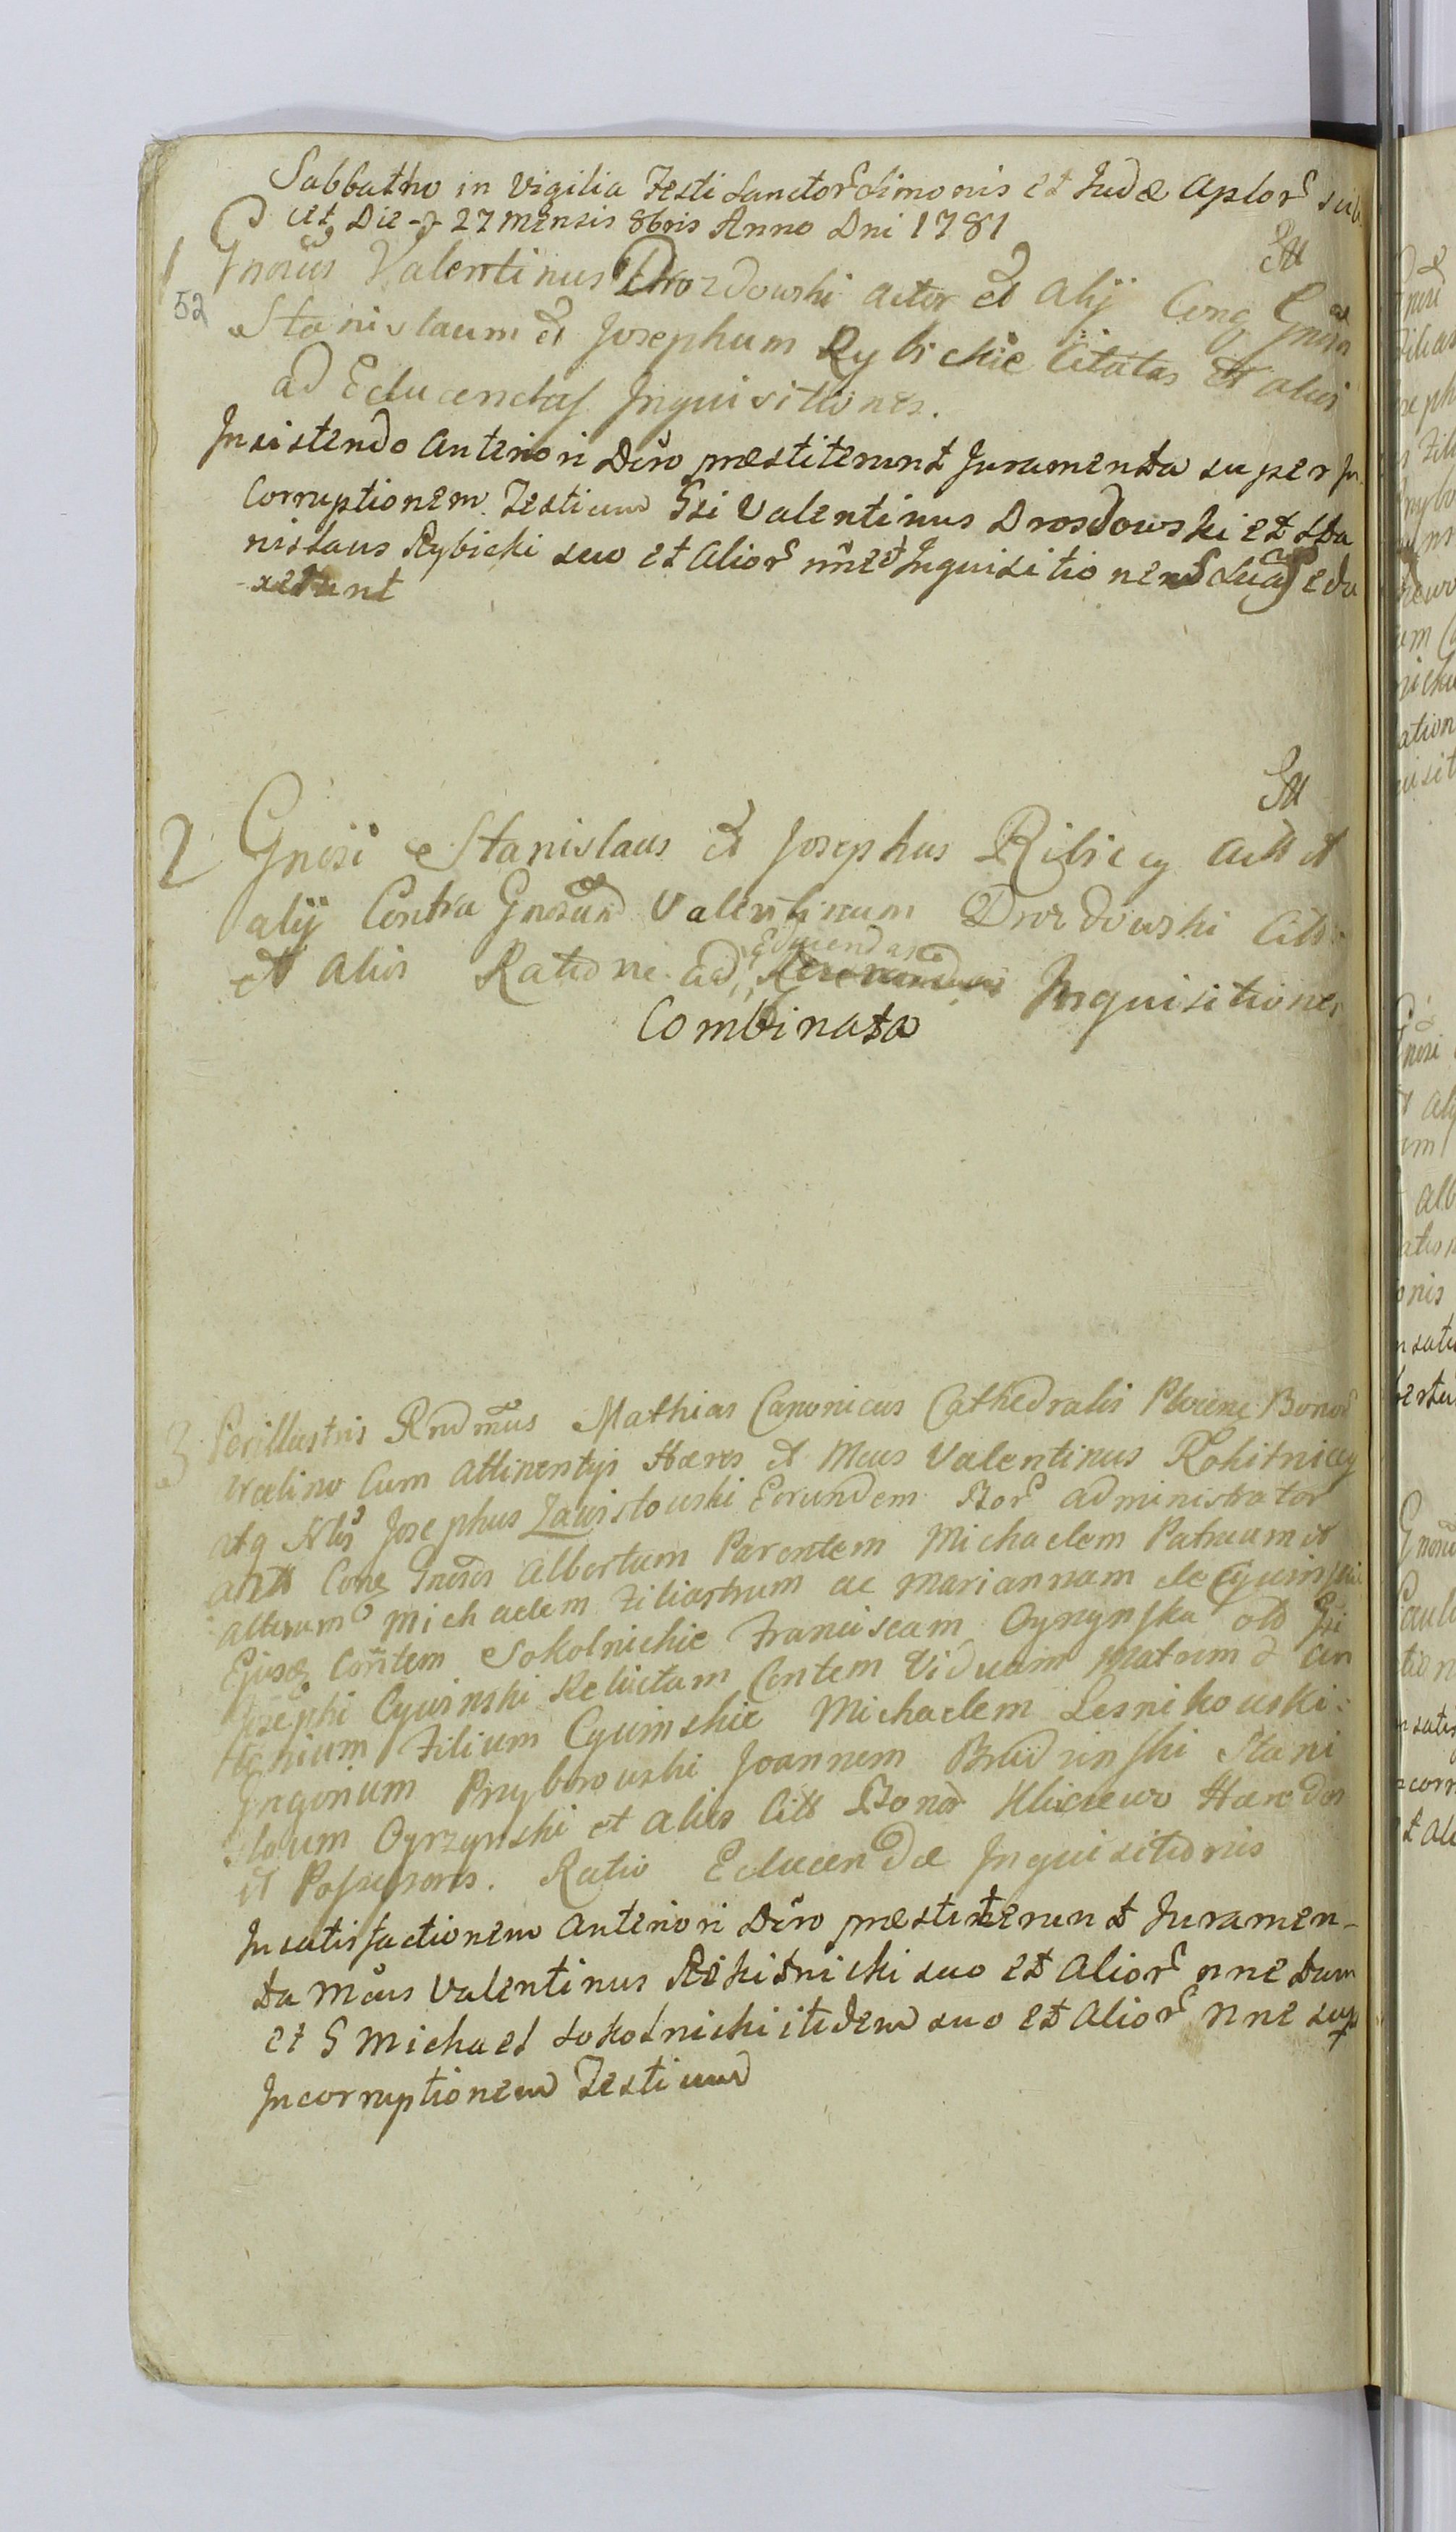 Sabbatho in Vigilia Festi Sanctor Simonis et Judæ Aplor sub
cet Die -j- 27 Mensis 8bris Anno Dni 1781
Stt
1 Gnosus Valentinus Drozdowski Actor et Alij Conq Gnosos
52
Stanislaum et Josephum Rybickie Citatas et alios
ad Educendas Inquisitiones.
Insistendo Anteriori Dcro præstiterunt Juramenta super In
Corruptionem Testium Gsi Valentinus Drosdowski et Sta
nislaus Rybicki suo et Alior nne et Inquisitionem Suas edu
xerunt
Stt
2 Gnosi Stanislaus et Josephus Ribiccy Actt et
alij Contra Gnosum Valentinum Drozdowski Citt
et Alios Ratione ad Educendas Inquisitiones
Combinata
3 Perillustris Rndmus Mathias Canonicus Cathedralis Plocens Bonor
cum Attinentijs Hæres et Mcus Valentinus Rokitniccy
atq Nlis Josephus Zawistowski Eorundem Bonor Administrator
Actt Conq Gnosos Albertum Parentem Michaelem Patruum et
alterum Michaelem Filiastrum ac Mariannam de Cywinskie
Ejusq Contem Sokolnickie Franciscam Oyrzynska olo Gsi
Josephi Cywinski Relictam Contem Viduam Matrem et An
tonium Filium Cywinskie Michaelem Lesnikowski
Gregorium Przyborowski Joannem Brudzinski Stani
slaum Oyrzynski et alios Citt Bonor Kliczewo Hæredes
et Possessores. Ratio Educendæ Inquisitionis
In satisfactionem Anteriori Dcro præstiterunt Juramen-
ta Mcus Valentinus Rokitnicki suo et Alior nne tum
et G Michael Sokolnicki itidem suo et Alior nne sup
Incorruptionem Testium